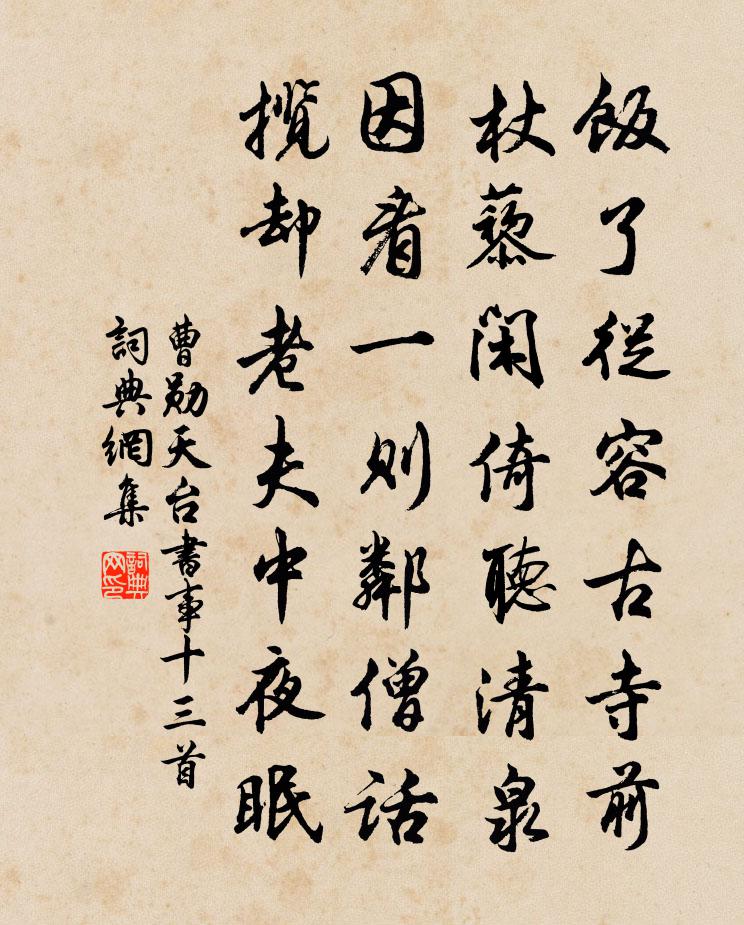 飯了從容古寺前
杖藜閑倚聽清泉
因看一則鄰僧話
攪却老夫中夜眠
曹勛天台書事十三首
詞典網集
詞典网印